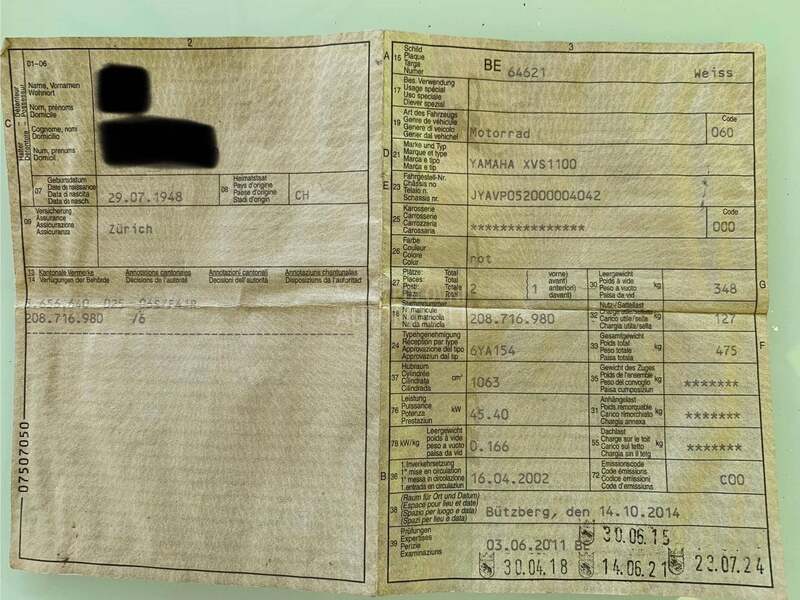 2
01-06
Name, Vornamen
Wohnort
Nom, prénoms
Domicile
Cognome, nomi
Domicilio
Num, prenums
Domicil
C
07
Geburtsdatum
Date de naissance
Data di nascita
Data da nasch.
29.07.1948
08
Heimatstaat
Pays d'origine
Paese d'origine
Stadi d'origin
CH
09
Versicherung
Assurance
Assicurazione
Assicuranza
Zürich
13 Kantonale Vermerke Annotations cantonales Annotazioni cantonali Annotaziuns chantunalas
14 Verfügungen der Behörde Décisions de l'autorité Decisioni dell'autorità Disposiziuns da l'autoritad
208.716.980 /6
07507050
3
A 15
Schild
Plaque
Targa
Numer
BE 64621 Weiss
17
Bes. Verwendung
Usage spécial
Uso speciale
Diever spezial
19
Art des Fahrzeugs
Genre de véhicule
Genere di veicolo
Gener dal vehichel
Motorrad
Code
060
D 21
Marke und Typ
Marque et type
Marca e tipo
Marca e tip
YAMAHA XVS1100
E 23
Fahrgestell-Nr.
Châssis no
Telaio n.
Schassis nr.
JYAVP052000004042
25
Karosserie
Carrosserie
Carrozzeria
Carossaria
***************
Code
000
26
Farbe
Couleur
Colore
Colur
rot
27
Plätze: Total
Places: Total
Posti: Totale
Plazs: Total
2
vorne)
avant)
anteriori)
davant)
1
30
Leergewicht
Poids à vide
Peso a vuoto
Paisa da vid
kg
348
G
18
Stammnummer
N° matricule
N. di matricola
Nr. da matricla
208.716.980
32
Nutz-/Sattellast
Charge utile/sellette
Carico utile/sella
Chargia utila/sella
kg
127
24
Typengenehmigung
Réception par type
Approvazione del tipo
Approvaziun dal tip
6YA154
33
Gesamtgewicht
Poids total
Peso totale
Paisa totala
kg
475
F
37
Hubraum
Cylindrée
Cilindrata
Cilindrada
cm³
1063
35
Gewicht des Zuges
Poids de l'ensemble
Peso del convoglio
Paisa cumposiziun
kg
*******
76
Leistung
Puissance
Potenza
Prestaziun
kW
45.40
31
Anhängelast
Poids remorquable
Carico rimorchiato
Chargia annexa
kg
*******
78 kW/kg
Leergewicht
poids à vide
peso a vuoto
paisa da vid
0.166
55
Dachlast
Charge sur le toit
Carico sul tetto
Chargia sin il tetg
kg
*******
B 36
1. Inverkehrsetzung
1re mise en circulation
1a messa in circolazione
1. entrada en circulaziun
16.04.2002
72
Emissionscode
Code émissions
Codice emissioni
Code d'emissiuns
C00
38
(Raum für Ort und Datum)
(Espace pour lieu et date)
(Spazio per luogo e data)
(Spazi per lieu e data)
Bützberg, den 14.10.2014
39
Prüfungen
Expertises
Perizie
Examinaziuns
03.06.2011 BE
30.06.15
30.04.18 14.06.21 23.07.24